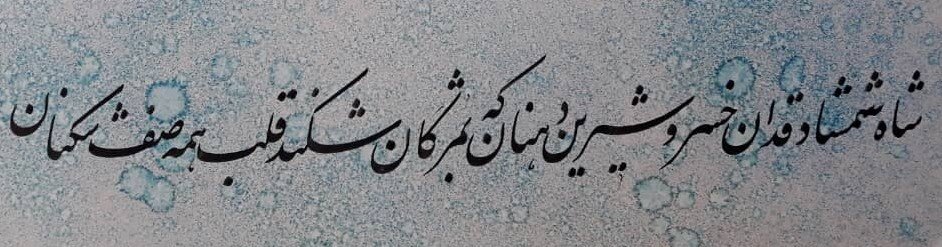 شاه شمشاد قدان خسرو شیرین دهنان که بمژگان شکند قلب همه صف شکنان